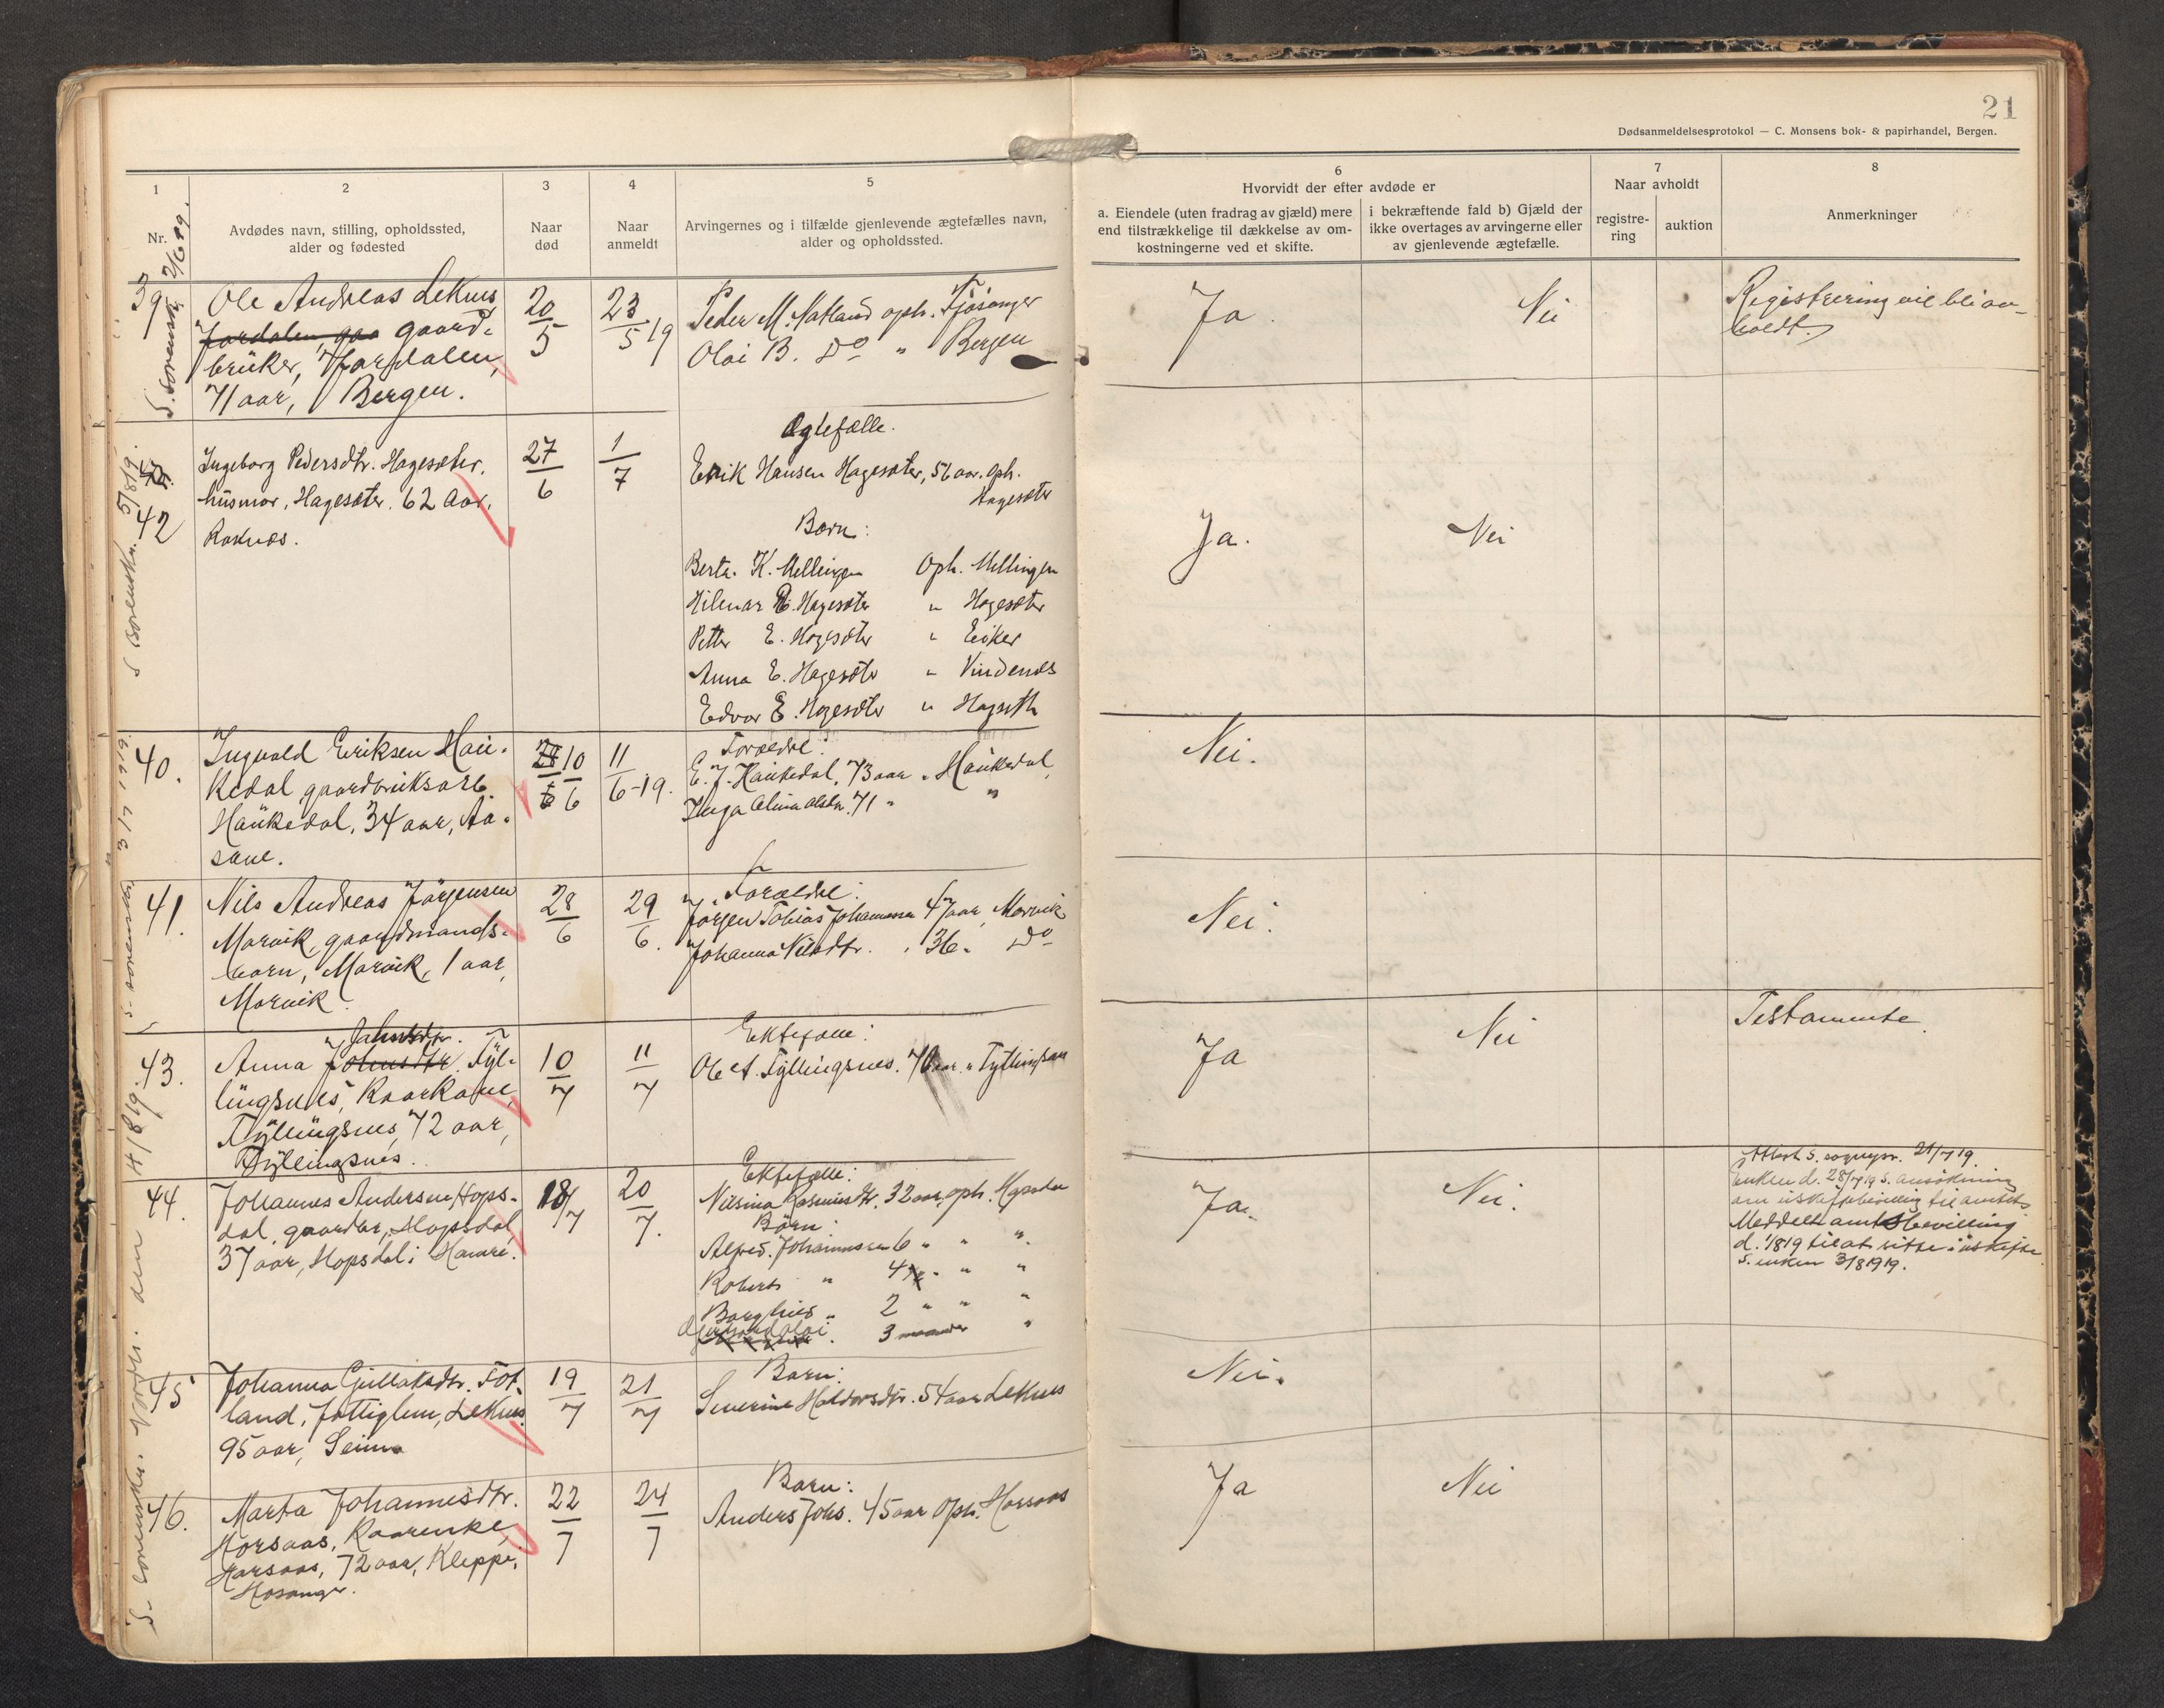 21
Dødsanmeldelsesprotokol — C. Monsens bok- & papirhandel, Bergen.
1
Nr.
2
Avdødes navn, stilling, opholdssted,
alder og fødested
3
Naar
død
4
Naar
anmeldt
5
Arvingernes og i tilfælde gjenlevende ægtefælles navn,
alder og opholdssted.
6
Hvorvidt der efter avdøde er
a. Eiendele (uten fradrag av gjæld) mere
end tilstrækkelige til dækkelse av om-
kostningerne ved et skifte.
i bekræftende fald b) Gjæld der
ikke overtages av arvingerne eller
av gjenlevende ægtefælle.
7
Naar avholdt
registre-
ring
auktion
8
Anmerkninger
39
Ole Andreas Leknes
Jordalen, gaa gaard-
brüker, Jordalen,
71 aar, Bergen.
20/5
23/5 19
Peder M. Natland oph. Fjøsanger
Olai B. Do " Bergen
Ja.
Nei
Registrering vil bli av-
holdt.
42
Ingeborg Pedersdtr. Hagesæter.
hüsmor, Hagesæter. 62 aar.
Roknæs.
27/6
1/7
Ægtefælle.
Erik Hansen Hagesæter, 56 aar. Oph.
Hagesæter
Børn:
Berta K. Mellingen Oph. Mellingen
Hilmar E. Hagesæter " Hagesæter
Petter E. Hagesæter " Eiker
Anna E. Hagesæter " Vindenes
Edvar E. Hagesæter " Hagesæter
Ja.
Nei
40.
Ingvald Eriksen Haü-
kedal, gaardbruksarb.
Haükedal, 34 aar, Aa-
sane.
10/6
11/6-19.
Forældre:
E. J. Haükedal, 73 aar " Haükedal
Inga Olina Olsdtr. 71 " "
Nei.
41.
Nils Andreas Jørgensen
Morvik, gaardmands-
barn, Morvik, 1 aar,
Morvik
28/6
29/6.
Forældre:
Jørgen Tobias Johannesen 47 aar, Morvik
Johanna Nilsdtr. " 36 " Do
Nei.
43.
Jahnsdtr.
Anna Johnsdtr. Fyl-
lingsnes, Kaarkone,
Fyllingsnes, 72 aar,
Fyllingsnes.
10/7
11/7
Ektefælle:
Ole A. Fyllingsnes. 70 aar. " Fyllingsnes
Ja
Nei
Testamente.
44.
Johannes Andersen Hops-
dal, gaardbr, Hopsdal,
37 aar, Hopsdal i Hamre.
18/7
20/7.
Ektefælle:
Nilsina Rasmusdtr. 32 aar, oph. Hopsdal
Børn:
Alfred. Johannessen 6 " " "
Robert " 4 " " "
Borghild " 2 " " "
Olai. 3 maaneder "
Ja.
Nei.
Attest s. sogneprs. 21/7 19.
Enken d. 28/7 19 s. ansökning
om uskiftebevilling til amtet.
Meddelt amtsbevilling
d. 1/8 19 til at sitte i uskifte
s. enken 3/8 1919.
45
Johanna Gullaksdtr. Fot-
land, fattiglem, Leknes
95 aar, Seim
19/7
21/7
Barn:
Severine Haldorsdtr. 54 aar Leknes
Nei.
46.
Marta Johannesdtr.
Horsaas, Kaarenke,
Horsaas, 72 aar, Kleppe,
Hosanger.
22/7
24/7
Barn:
Anders Johs. 45 aar Oph. Horsaas
Ja
Nei